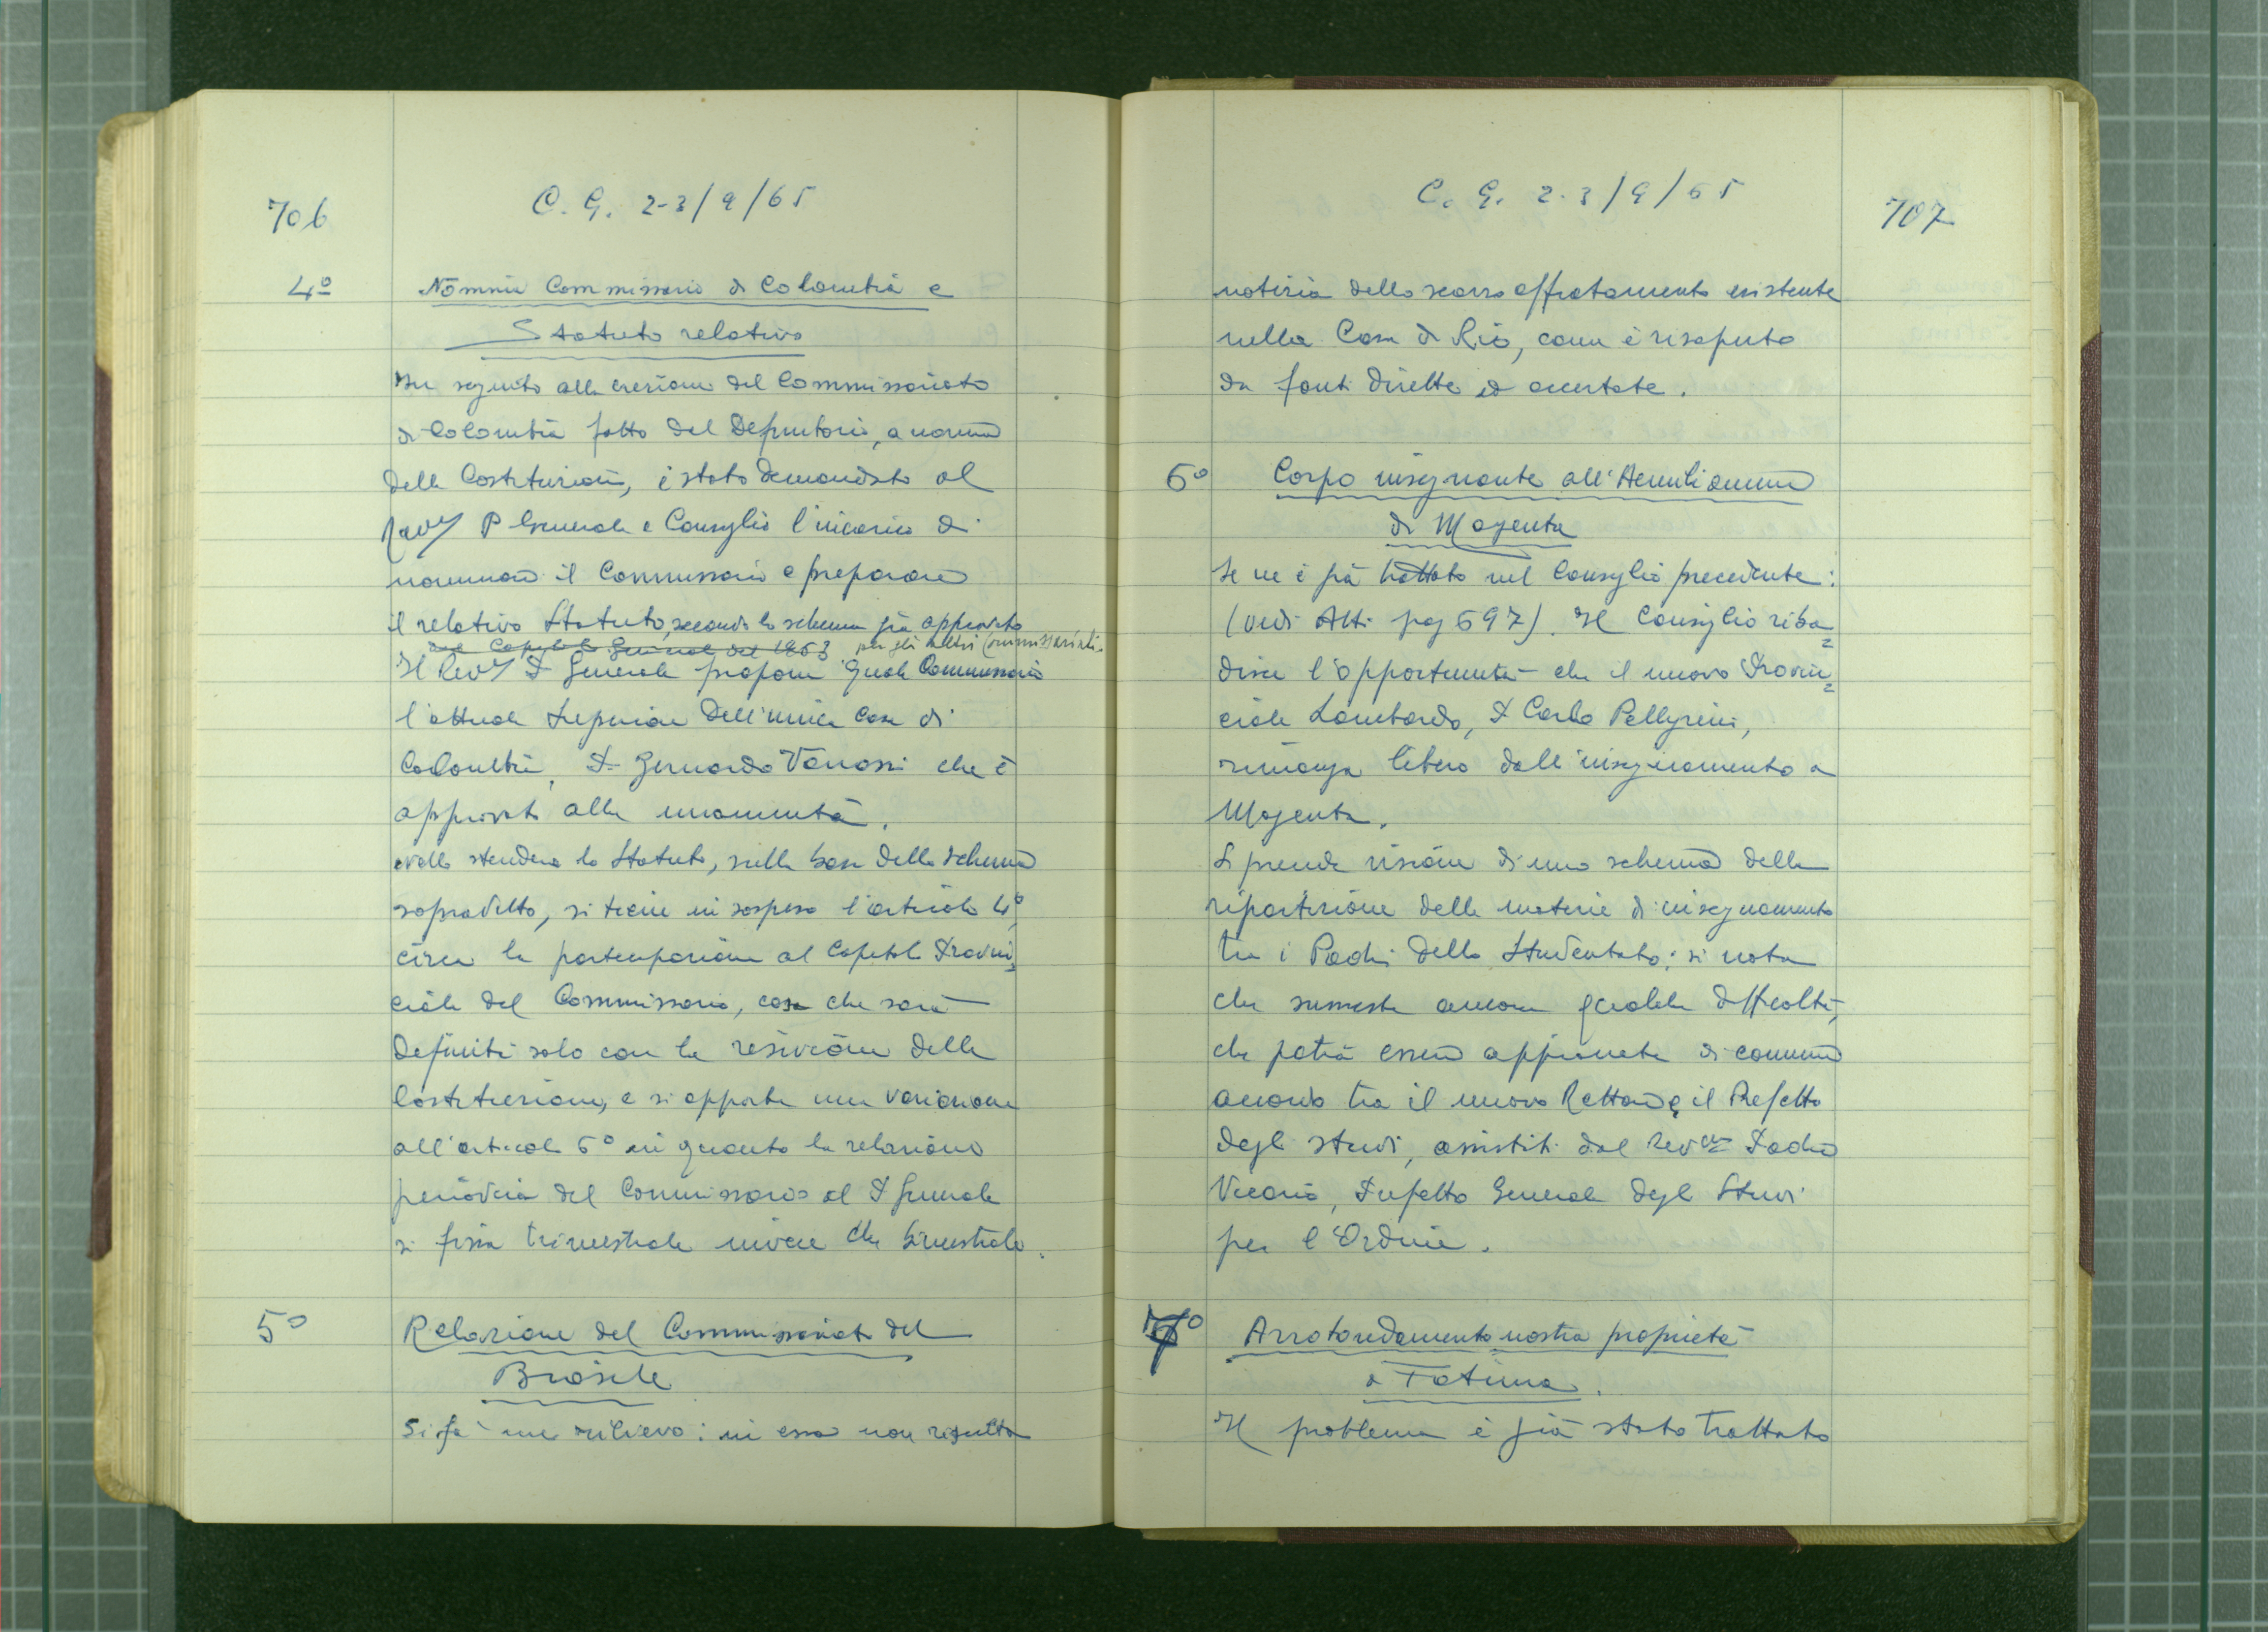 706
C. G. 2-3/9/65
4º
Nomina Commissario di Colombia e
Statuto relativo
In seguito alla erezione del Commissariato
di Colombia fatto dal Definitorio, a norma
delle Costituzioni, è stato demandato al
Rev P Generale e Consiglio l'incarico di
nominare il Commissario e preparare
il relativo Statuto, secondo lo schema già approvato
dal Capitolo Generale del 1963 per gli altri Commissariati.
Il Rev P Generale propone quale Commissario
l'attuale Superiore dell'unica Casa di
Colombia, P. Gernardo Vanossi che è
approvato alla unanimità.
Nello stendere lo Statuto, sulla base dello schema
sopradetto, si tiene in sospeso l'articolo 4º,
circa la partecipazione al Capitolo Provin=
ciale del Commissario, cosa che sarà
definita solo con la revisione delle
Costituzioni, e si apporta una variazione
all'articolo 6º in quanto la relazione
periodica del Commissario al P Generale
si fissa trimestrale invece che bimestrale.
5º
Relazione del Commissariato del
Brasile
Si fa un rilievo: in essa non risulta
C. G. 2-3/9/65
707
notizia dello scarso affiatamento esistente
nella Casa di Rio, come è risaputo
da fonti dirette ed accertate.
6º
Corpo insegnante all'Aemilianum
di Magenta
Se ne è già trattato nel Consiglio precedente:
(vedi Atti pag 697). Il Consiglio riba=
disce l'opportunità che il nuovo Provin=
ciale Lombardo, P Carlo Pellegrini,
rimanga libero dall'insegnamento a
Magenta.
Si prende visione di uno schema della
ripartizione delle materie di insegnamento
tra i Padri dello Studentato; si nota
che sussiste ancora qualche difficoltà,
che potrà essere appianata di comune
accordo tra il nuovo Rettore e il Prefetto
degli studi, assistiti dal Rev.mo Padre
Vicario, Prefetto Generale degli Studi
per l'Ordine.
7º
Arrotondamento nostra proprietà
a Fatima.
Il problema è già stato trattato